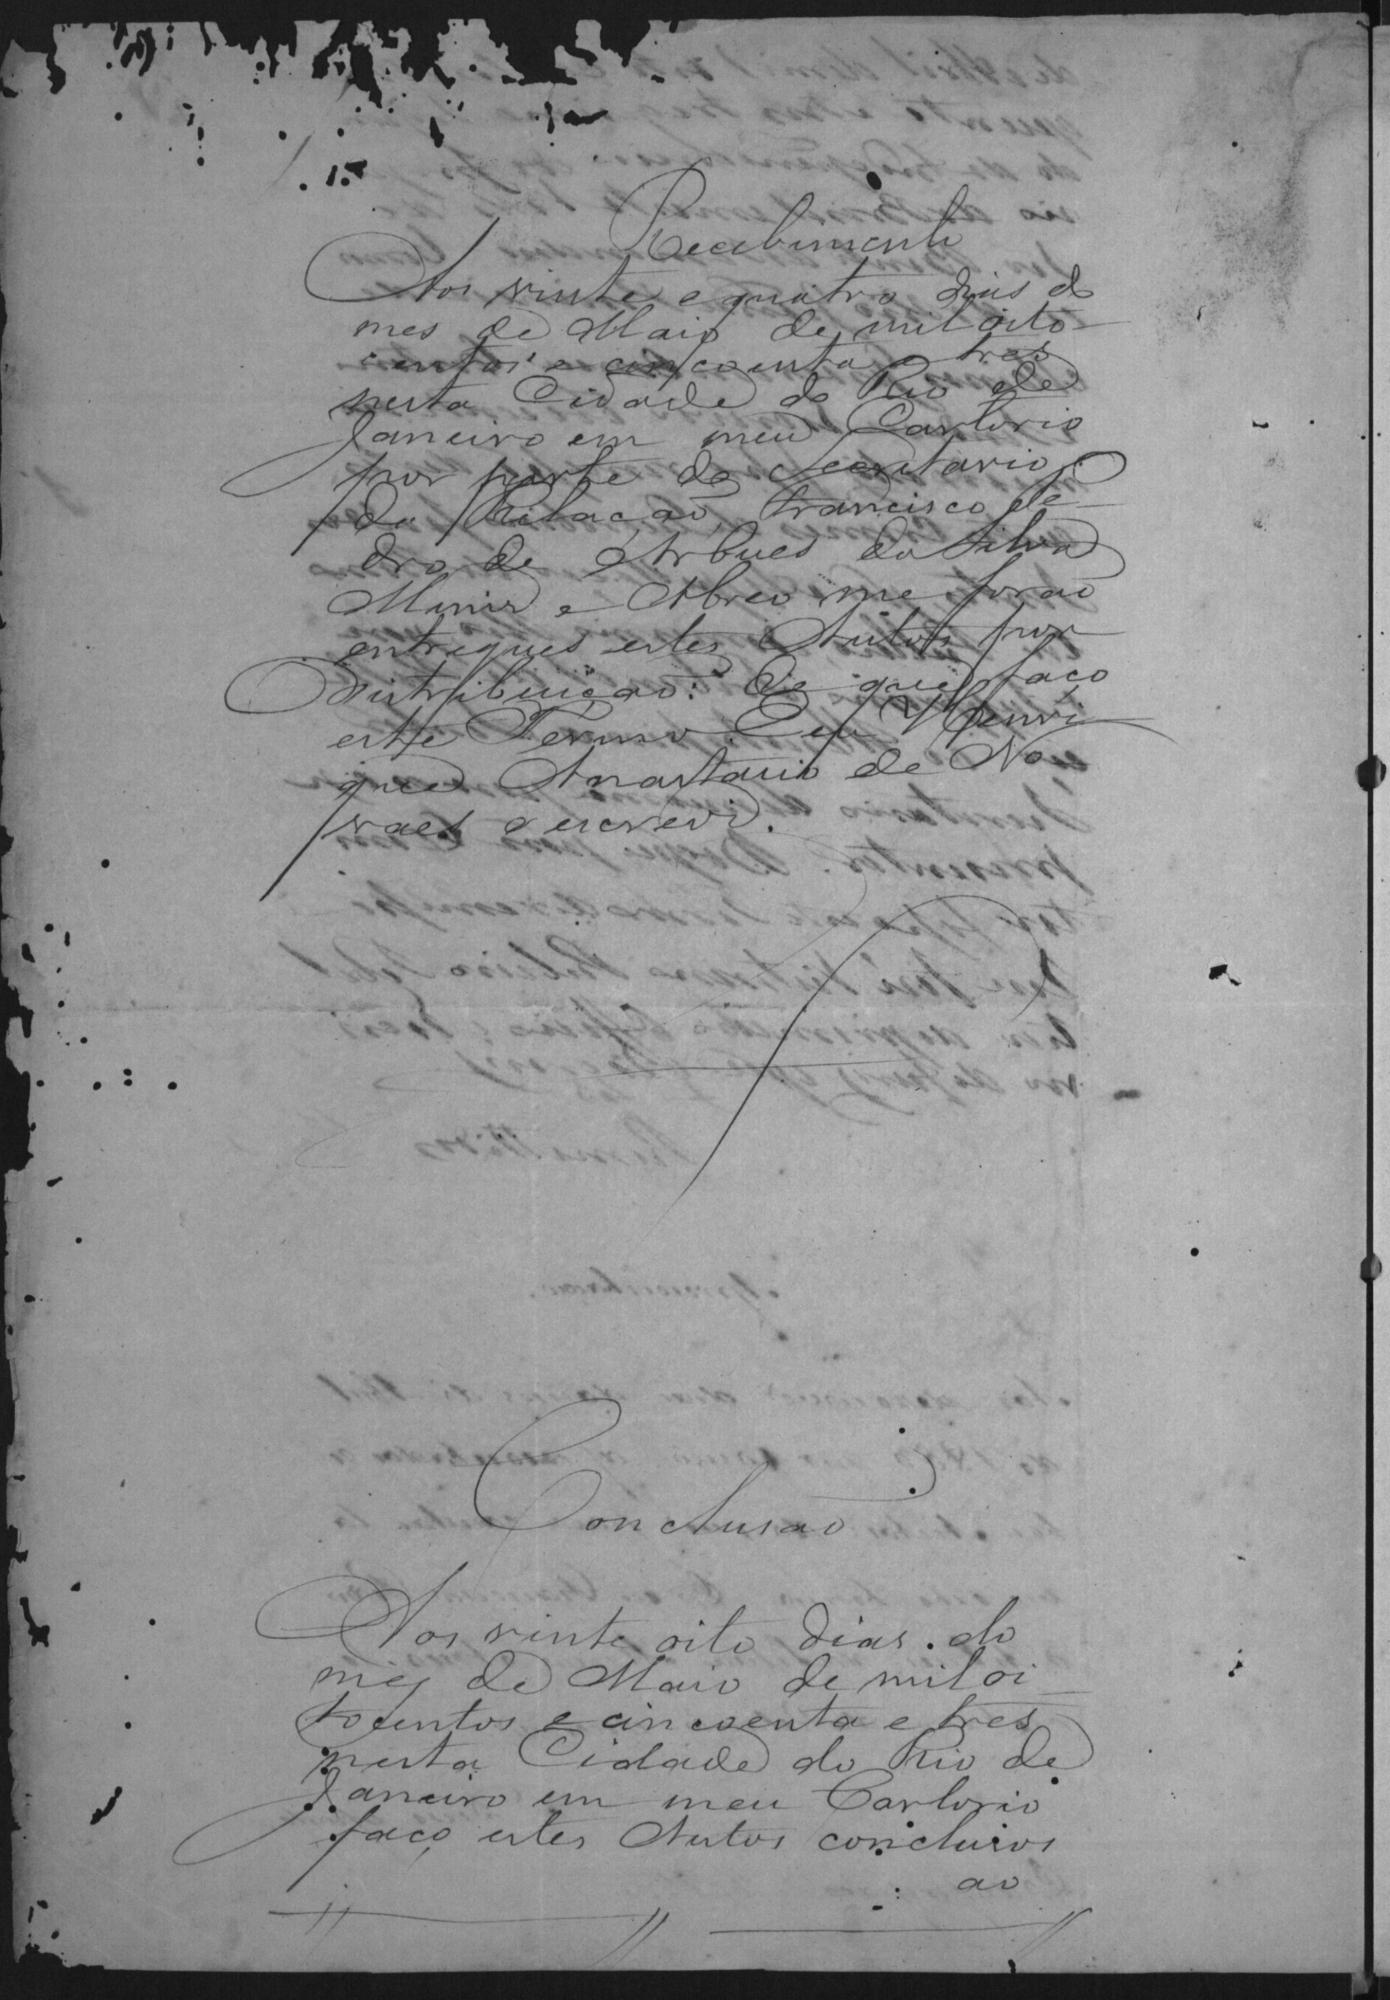 Recebimento
Aos vinte e quatro dias do
mes de Maio de mil oito
centos e cincoenta e tres
nesta Cidade do Rio de
Janeiro em meu Cartorio
por parte do Secretario
da Relação Francisco Pe-
dro de Arbues da Silva
Muniz e Abreo me forão
entregues estes Autos por
Distribuição: de que faço
este Termo Eu Henri
que Anastacio de No
vaes escrevi.
Conclusão
Aos vinte oito dias do
mez de Maio de mil oi
tocentos e cincoenta e tres
nesta Cidade do Rio de
Janeiro em meu Cartorio
faço estes Autos conclusos
ao